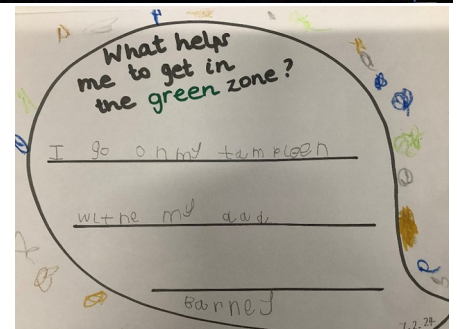 What helps
me to get in
the green zone?
I go on my tampleen
withe my dad
Barney
7.2.24